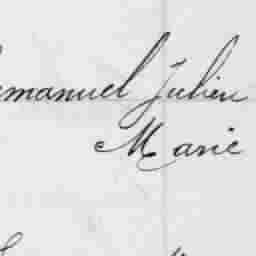 manuel Julien
Marie